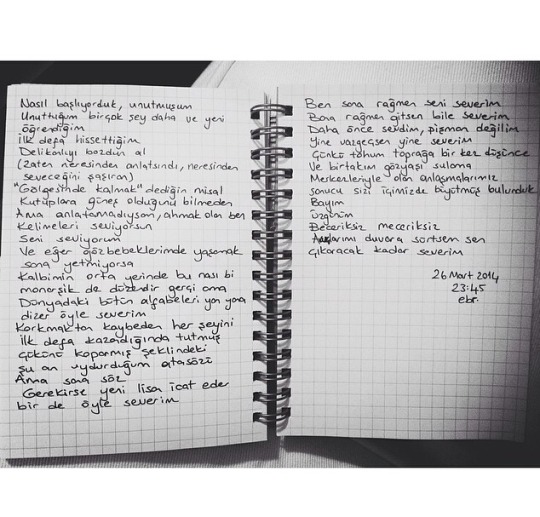 Nasıl başlıyorduk, unutmuşum
Unuttuğum birçok şey daha ve yeni
öğrendiğim
İlk defa hissettiğim
Delikanlıyı bozdun al
(zaten neresinden anlatsındı, neresinden
seveceğini şaşıran)
"Gölgesinde kalmak" dediğin misal
Kutuplara güneş olduğunu bilmeden
Ama anlatamadıysan, ahmak olan ben
Kelimeleri seviyorsun
Seni seviyorum
Ve eğer gözbebeklerimde yaşamak
sana yetmiyorsa
Kalbimin orta yerinde bu nası bi
monarşik de düzendir gerçi ama
Dünyadaki bütün alfabeleri yan yana
dizer öyle severim
Korkmaktan kaybeden her şeyini
İlk defa kazandığında tutmuş
çükünü koparmış şeklindeki
şu an uydurduğum atasözü
Ama sana söz
Gerekirse yeni lisan icat eder
bir de öyle severim
Ben sana rağmen seni severim
Bana rağmen gitsen bile severim
Daha önce sevdim, pişman değilim
Yine vazgeçsen yine severim
Çünkü tohum toprağa bir kez düşünce
Ve birtakım gözyaşı sulama
Merkezleriyle olan anlaşmalarımız
sonucu sizi içimizde büyütmüş bulunduk
Bayım
Üzgünüm
Beceriksiz meceriksiz
duvara sortsem sen
çıkaracak kadar severim
26 Mart 2014
23:45
ebr.